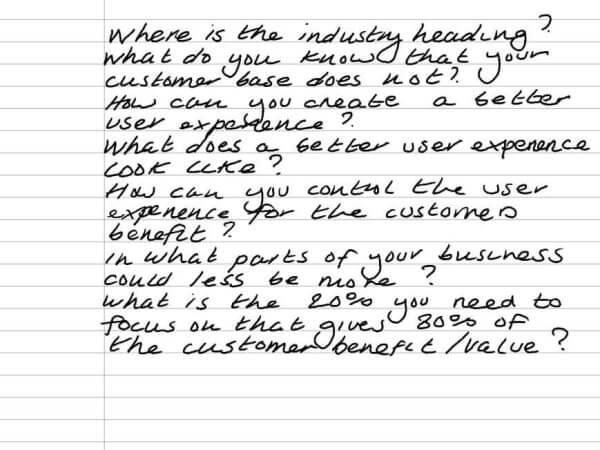 Where is the industry heading?
What do you know that your
customer base does not?
How can you create a better
user experience?
What does a better user experience
look like?
How can you control the user
experience for the customers
benefit?
In what parts of your business
could less be more?
What is the 20% you need to
focus on that gives 80% of
the customer benefit/value?